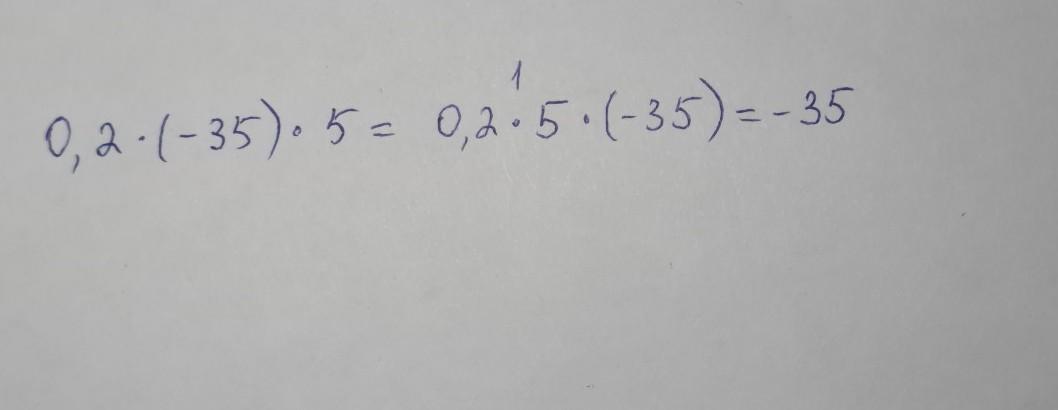 1
0,2·(-35)·5= 0,2·5·(-35)=-35